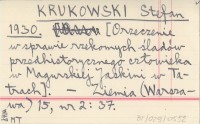 KRUKOWSKI Stefan
1930. [Orzeczenie
w sprawie rzekomych śladów
przedhistorycznego człowieka
w Magurskiej Jaskini w Ta-
trach]. - Ziemia (Warsza-
wa) 15, nr 2: 37.
MT